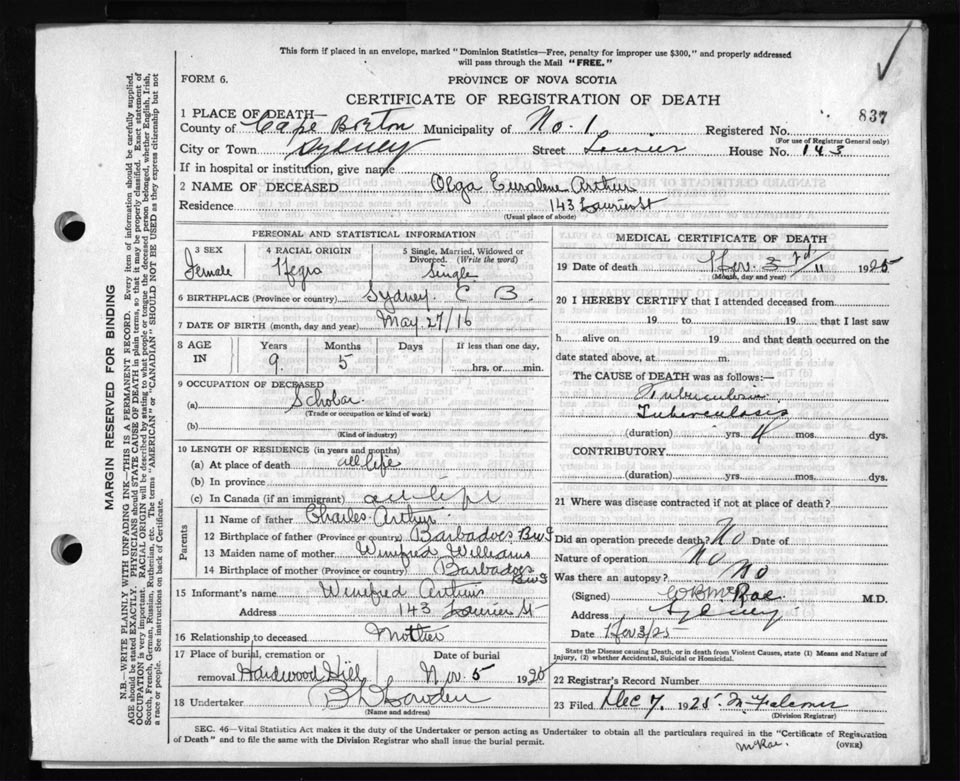 This form if placed in an envelope, marked "Dominion Statistics—Free, penalty for improper use $300," and properly addressed
will pass through the Mail "FREE."
FORM 6.
PROVINCE OF NOVA SCOTIA
CERTIFICATE OF REGISTRATION OF DEATH
837
1 PLACE OF DEATH—
County of Cape Breton Municipality of No. 1 Registered No.
(For use of Registrar General only)
City or Town Sydney Street Laurier House No. 143
If in hospital or institution, give name
2 NAME OF DECEASED Olga Arthur
Residence 143 Laurier St
(Usual place of abode)
PERSONAL AND STATISTICAL INFORMATION
3 SEX
Female
4 RACIAL ORIGIN
Negro
5 Single, Married, Widowed or
Divorced. (Write the word)
Single
6 BIRTHPLACE (Province or country) Sydney. C B.
7 DATE OF BIRTH (month, day and year) May 27/16
8 AGE IN
Years Months Days If less than one day,
9. 5 hrs. or min.
9 OCCUPATION OF DECEASED
(a) Scholar
(Trade or occupation or kind of work)
(b)
(Kind of industry)
10 LENGTH OF RESIDENCE (in years and months)
(a) At place of death all life
(b) In province
(c) In Canada (if an immigrant) all life
Parents
11 Name of father Charles Arthur
12 Birthplace of father (Province or country) Barbadoes BWI
13 Maiden name of mother Winifred Williams
14 Birthplace of mother (Province or country) Barbadoes BWI
15 Informant's name Winifred Arthur
Address 143 Laurier St
16 Relationship to deceased Mother
17 Place of burial, cremation or
removal Hardwood Hill
Date of burial
Nov. 5 1925
18 Undertaker
(Name and address)
MEDICAL CERTIFICATE OF DEATH
19 Date of death Nov. 3rd 11 1925
(Month, day and year)
20 I HEREBY CERTIFY that I attended deceased from
19 to 19 that I last saw
h alive on 19 and that death occurred on the
date stated above, at m.
The CAUSE of DEATH was as follows:—
Tuberculosis
Tuberculosis
(duration) yrs. 4 mos. dys.
CONTRIBUTORY
(duration) yrs. mos. dys.
21 Where was disease contracted if not at place of death?
Did an operation precede death? No Date of
Nature of operation No
Was there an autopsy? No
(Signed) McRae M.D.
Address Sydney
Date Nov 3/25
State the Disease causing Death, or in death from Violent Causes, state (1) Means and Nature of
Injury, (2) whether Accidental, Suicidal or Homicidal.
22 Registrar's Record Number
23 Filed Dec 7. 1925
(Division Registrar)
SEC. 46—Vital Statistics Act makes it the duty of the Undertaker or person acting as Undertaker to obtain all the particulars required in the "Certificate of Registration
of Death" and to file the same with the Division Registrar who shall issue the burial permit.
McRae.
(OVER)
MARGIN RESERVED FOR BINDING
N.B.—WRITE PLAINLY WITH UNFADING INK—THIS IS A PERMANENT RECORD. Every item of information should be carefully supplied.
AGE should be stated EXACTLY. PHYSICIANS should STATE CAUSE OF DEATH in plain terms, so that it may be properly classified. Exact statement of
OCCUPATION is very important. RACIAL ORIGIN will be described by stating to what people or tongue the deceased person belonged, whether English, Irish,
Scotch, French, German, Russian, Ruthenian, etc. The terms "AMERICAN" or "CANADIAN" SHOULD NOT BE USED as they express citizenship but not
a race or people. See instructions on back of Certificate.